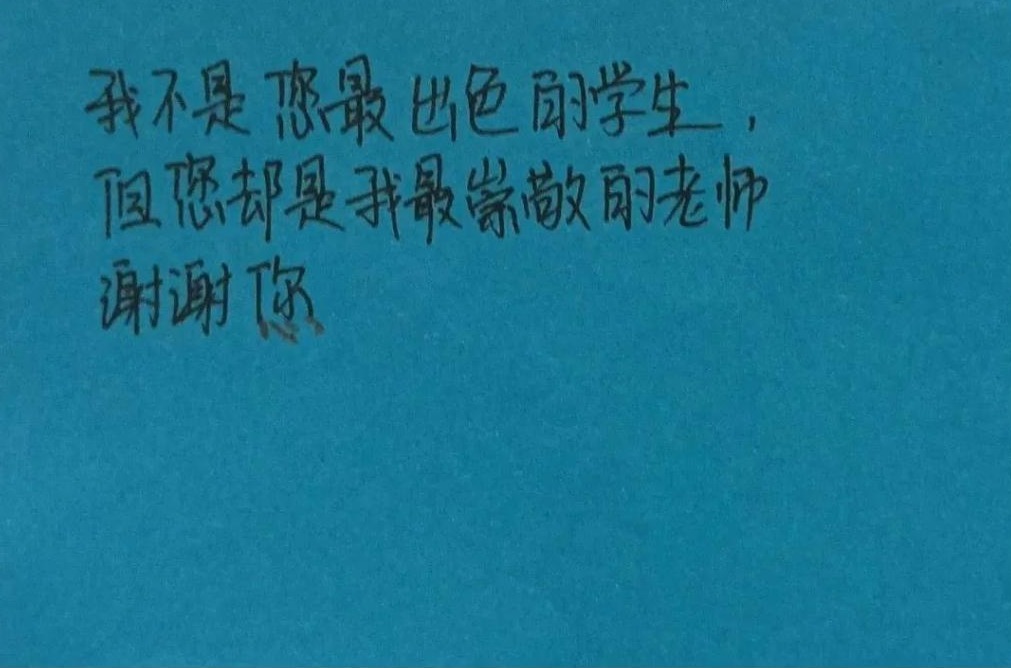 我不是您最出色的学生，
但您却是我最崇敬的老师
谢谢您